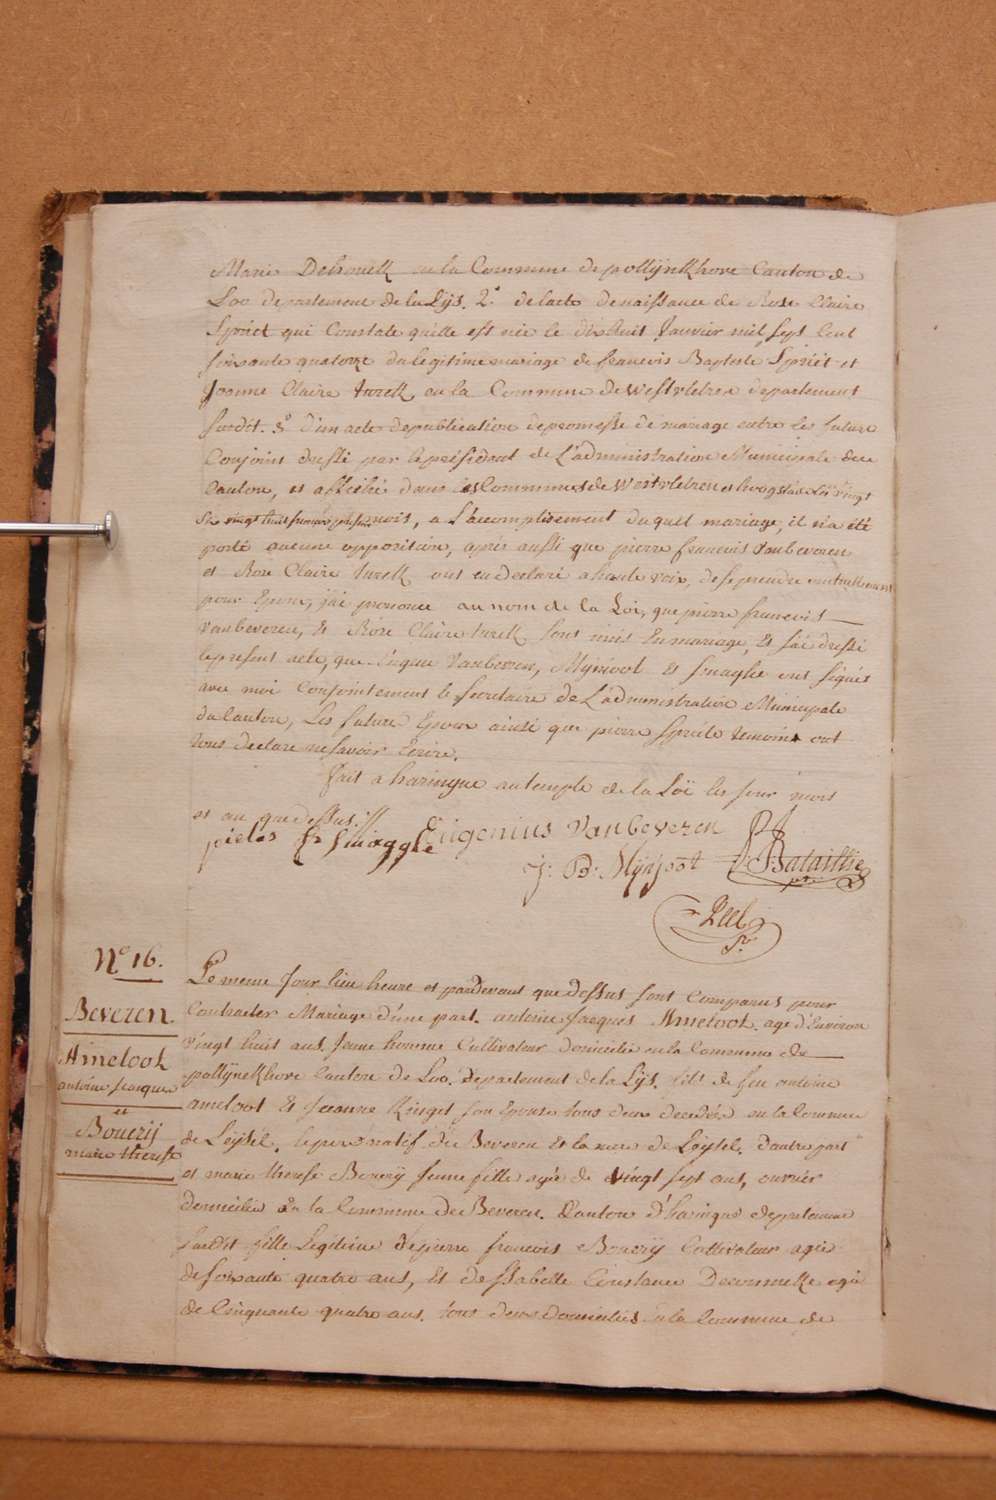 Marie Dehouck en la Commune de pollijnkhove Canton de
Loo departement de la Lijs. 2° de lacte de naissance de Rose Claire
Spriet qui Constate quelle est née le dixhuit Janvier mil sept Cent
soixante quatorze du legitime mariage de francois Baptiste Spriet et
Joanne Claire turck en la Commune de Westvletren departement
susdit. 3° d'un acte de publication de promesse de mariage entre les future
Conjoint dressé par le président de L'administration Municipale du
Canton, et affiché dans les Communes de Westvletren et hoogstade Les vingt
mois, a L'accomplisement duquel mariage, il n'a été
porté aucune opposition, aprés aussi que pierre francois Vanbeveren
et Rose Claire turck ont eu declaré a haute voix, de se prendre mutuellement
pour Epoux, j'ai prononcé au nom de la Loi, que pierre francois
Vanbeveren, et Rose Claire turck sont unis En mariage, et j'ai dressé
le present acte, que Eugene Vanbevren, Mijnjoot et smagghe ont signés
avec moi Conjointement le secretaire de L'administration Municipale
du Canton, Les future Epoux ainsi que pierre spriete temoins ont
tous declaré ne savoir Ecrire.
fait a haringue au temple de la Loi les jour mois
et an que dessus.
pieter fr Smagghe Eugenius Vanbeveren
J: B: Mijnjoot Bataillie
Peel
Sre
N° 16.
Beveren.
Ameloot
antoine jacques
et
Bouerij
marie therese
Le meme Jour lieu heure et pardevant que dessus sont Comparus pour
Contracter Mariage d'une part. antoine Jacques Ameloot. age d'Environ
Vingt huit ans Jeune homme Cultivateur domicilié en la Commune de
pollijnekhove Canton de Loo. departement de la Lijs. fils de feu antoine
ameloot et Jeanne Ringet son Epouse tous deux decedés en la Commune
de Leijsel. le pere natif de Beveren et la mere de Leijsel. d'autre part
et marie therese Bouerij Jeune fille agée de Vingt sept ans, ouvrier
domiciliée en la Commune de Beveren. Canton d'haringue departement
susdit fille Legitime de pierre francois Bouerij Cultivateur agée
de soixante quatre ans, et de Isabelle Constance Decormelle agée
de Cinquante quatre ans. tous deux domiciliés en la Commune de